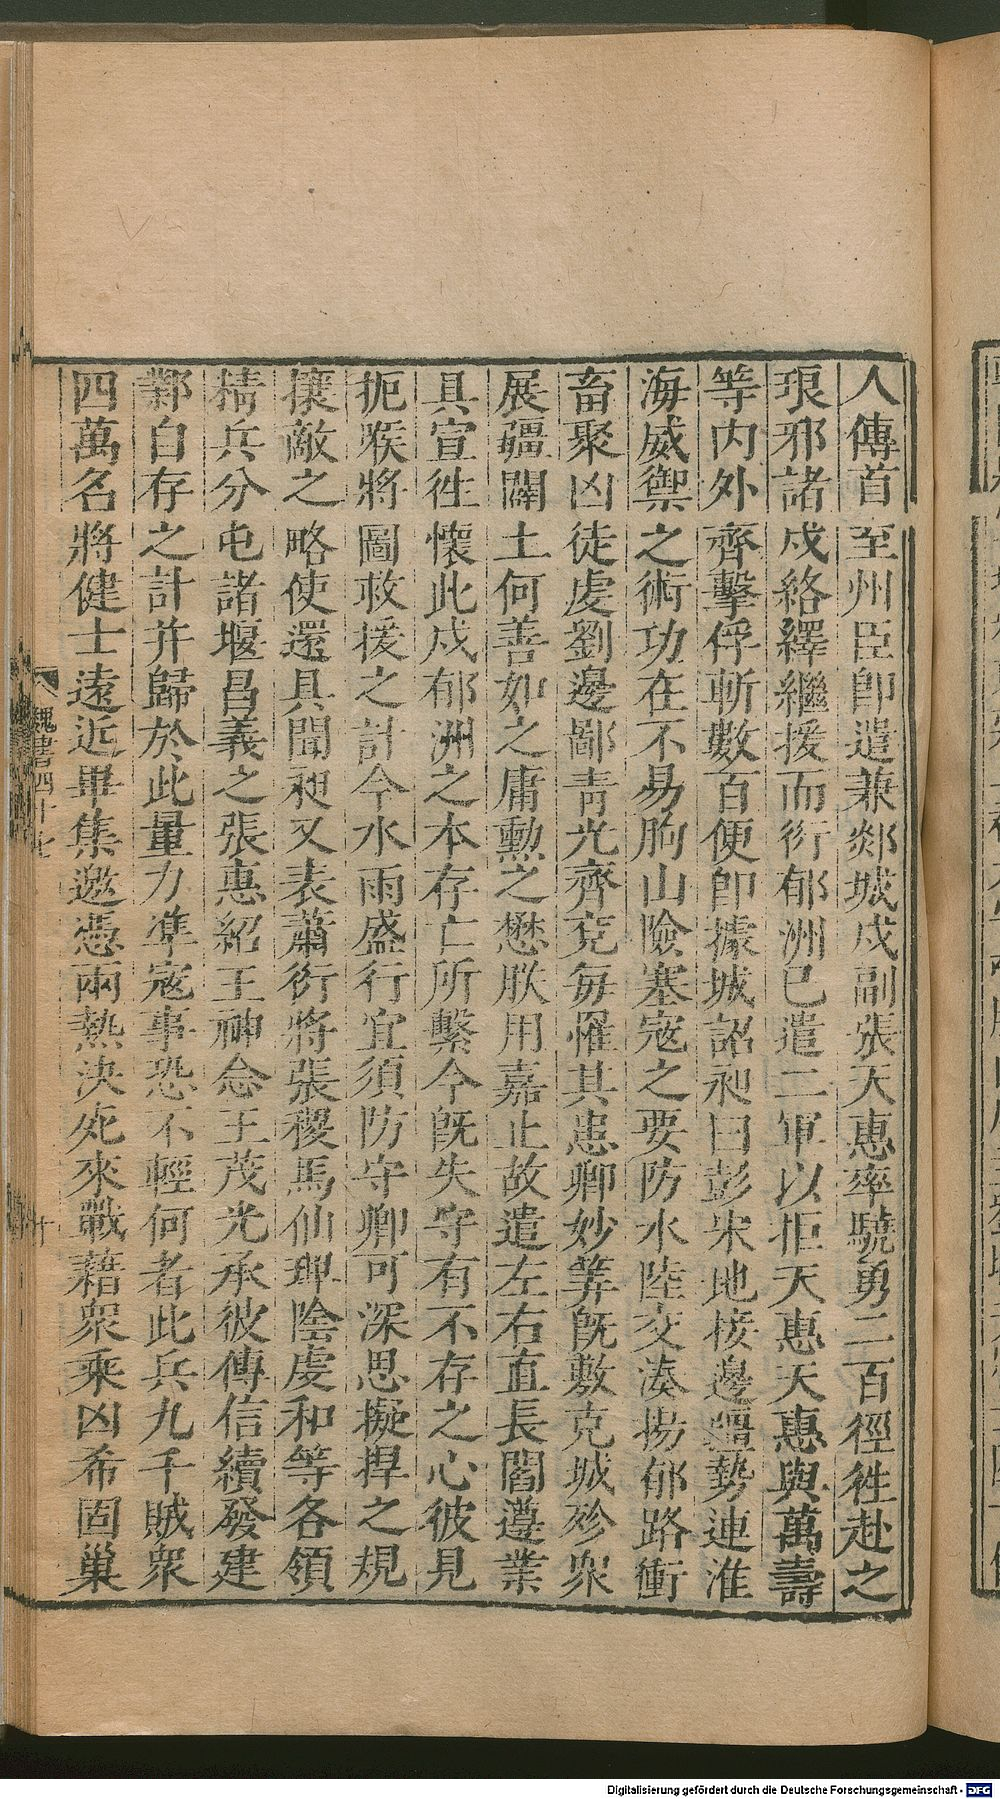 人傳首至州臣即遣兼郯城戍副張天惠率驍勇二百徑往赴之
琅邪諸戍絡繹繼援而衍郁洲已遣二軍以拒天惠天惠與萬壽
等内外齊擊俘斬數百便即據城詔昶曰彭宋地接邊疆勢連淮
海威禦之術功在不易朐山險塞寇之要防水陸交湊揚郁路衝
畜聚凶徒虔劉邊鄙青光齊兖每罹其患卿妙筭旣敷克城殄衆
展疆闢土何善如之庸勳之懋朕用嘉止故遣左右直長閻遵業
具宣往懷此戍郁洲之本存亡所繫今旣失守有不存之心彼見
扼喉將圖救援之計今水雨盛行宜須防守卿可深思擬捍之規
攘敵之略使還具聞昶又表蕭衍將張稷馬仙琕陰虔和等各領
精兵分屯諸堰昌義之張惠紹王神念王茂光承彼傳信續發建
鄴自存之計并歸於此量力準寇事恐不輕何者此兵九千賊衆
四萬名將健士遠近畢集邀憑雨熱決死來戰藉衆乘凶希固巢
魏書四十七
十
Digitalisierung gefördert durch die Deutsche Forschungsgemeinschaft - DFG